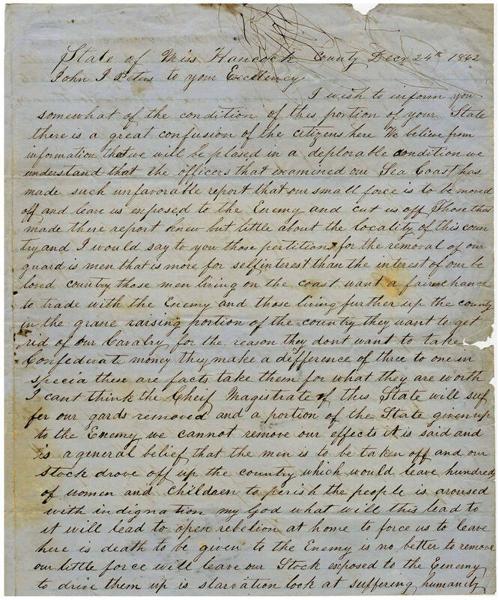 State of Miss Hancock County Decr 24th 1862
John J Peters to your Excelency
I wish to inform you
somewhat of the condition of this portion of your State
there is a great confusion of the citizens here We believe from
information that we will be plased in a deplorable condition we
understand that the officers that examined our Sea Coast has
made such unfavorable report that our small force is to be moved
off and leave us exposed to the Enemy and cut us off Those that
made there report knew but little about the locality of this coun
try and I would say to you those portitions for the removal of our
guard is men that is more for self interest than the interest of our be
loved country those men living on the coast want a fair chance
to trade with the Enemy and those living further up the country
in the grane rarsing portion of the country they want to get
rid of our Cavalry for the reason they dont want to take
Confederate money they make a difference of three to one in
specia these are facts take them for what they are worth
I cant think the Cheif Magistrate of this State will suf
fer our gards removed and a portion of the State given up
to the Enemy we cannot remove our effects it is said and
is a general belief that the men is to be taken off and our
stock drove off up the country which would leave hundreds
of women and children to perish the people is aroused
with indignation my God what will this lead to
it will lead to open rebelion at home to force us to leave
here is death to be given to the Enemy is no better to remove
our little force will leave our Stock exposed to the Enemy
to drive them up is starvation look at suffering humanity